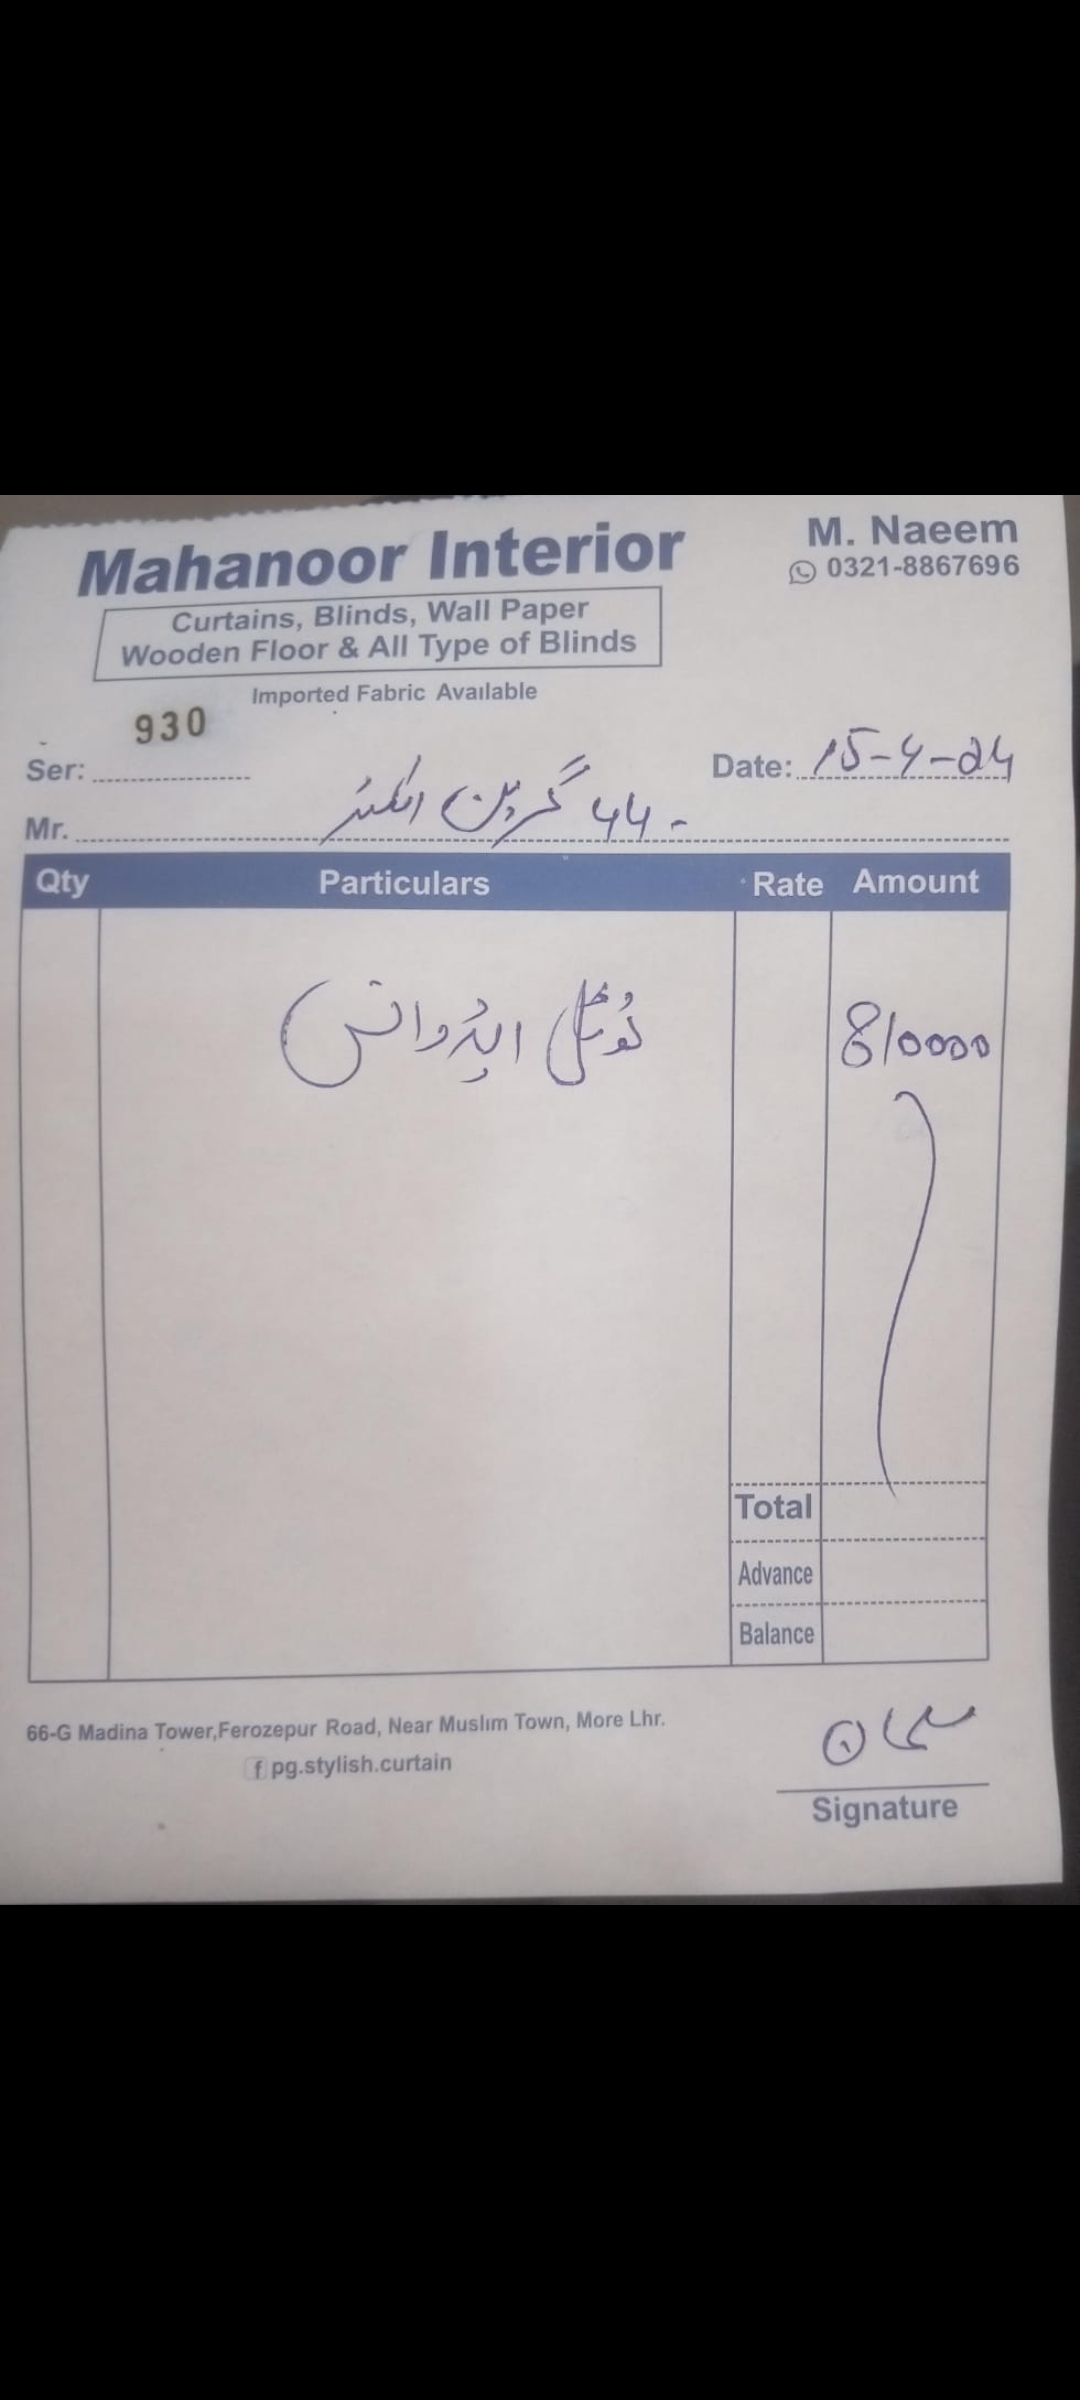 Mahanoor Interior
M. Naeem
0321-8867696
Curtains, Blinds, Wall Paper
Wooden Floor & All Type of Blinds
Imported Fabric Available
930
Ser:
Date: 15-4-24
Mr. 44 گرین
Qty Particulars Rate Amount
ٹوٹل ایڈوانس 810000
Total
Advance
Balance
66-G Madina Tower,Ferozepur Road, Near Muslim Town, More Lhr.
pg.stylish.curtain
Signature